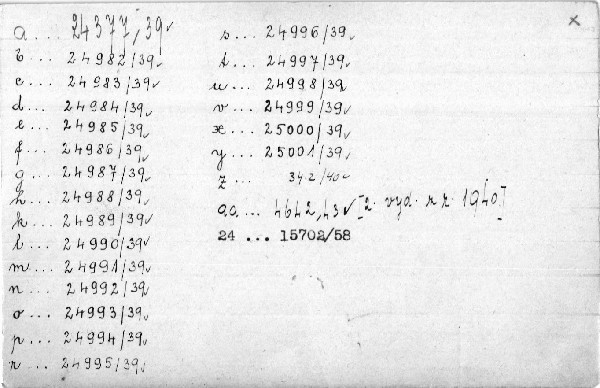 a ... 24377,39✓
b ... 24982/39✓
c ... 24983/39✓
d ... 24984/39✓
e ... 24985/39✓
f ... 24986/39✓
g ... 24987/39✓
h ... 24988/39✓
k ... 24989/39✓
l ... 24990/39✓
m ... 24991/39✓
n ... 24992/39
o ... 24993/39✓
p ... 24994/39✓
r ... 24995/39✓
s ... 24996/39✓
t ... 24997/39✓
u ... 24998/39
v ... 24999/39✓
x ... 25000/39✓
y ... 25001/39✓
z ... 342/40✓
aa ... 4642,43✓ [2. vyd. z r. 1940]
24 ... 15702/58
×